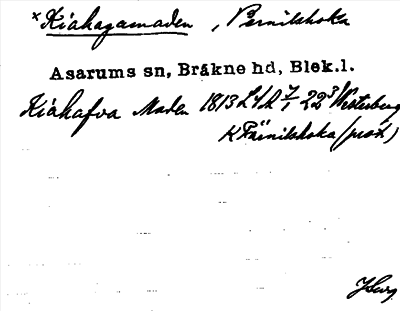 ˣKiåhagamaden, Pernilskoka
Asarums sn, Bräkne hd, Blek.l.
Kiåhafva Maden 1813 Lsk 7/1 22³ Westerberg
K Pärnilskoka (prot)